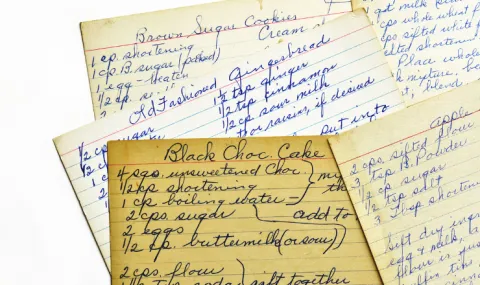 Brown Sugar Cookies
Cream
1 cp. shortening
1 cp. B. sugar (packed)
1 egg - beaten
1/2 sp.
Old Fashioned Gingerbread
1/2 cp sugar
1/2 cp
1 cp
1/2
1/2
1 1/2 tsp ginger
1/2 tsp cinnamon
1/2 cp sour milk
or raisins, if desired
put in to
Black Choc. Cake
4 sqs. unsweetened Choc.
1/2 cp shortening
1 cp boiling water
2 cps. sugar
add to
2 eggs
1/2 cp. buttermilk (or sour)
2 cps. flour
sift together
milk
cps whole wheat f
cps sifted white f
shortening
Place whole
mixture, ba
blend
apple
2 cps. sifted flour
3 tsp B. Powder
cp. sugar
1/2 tsp. salt
3 Tbsp shorteni
Sift dry ingr
egg & milk,
flour is just
tins